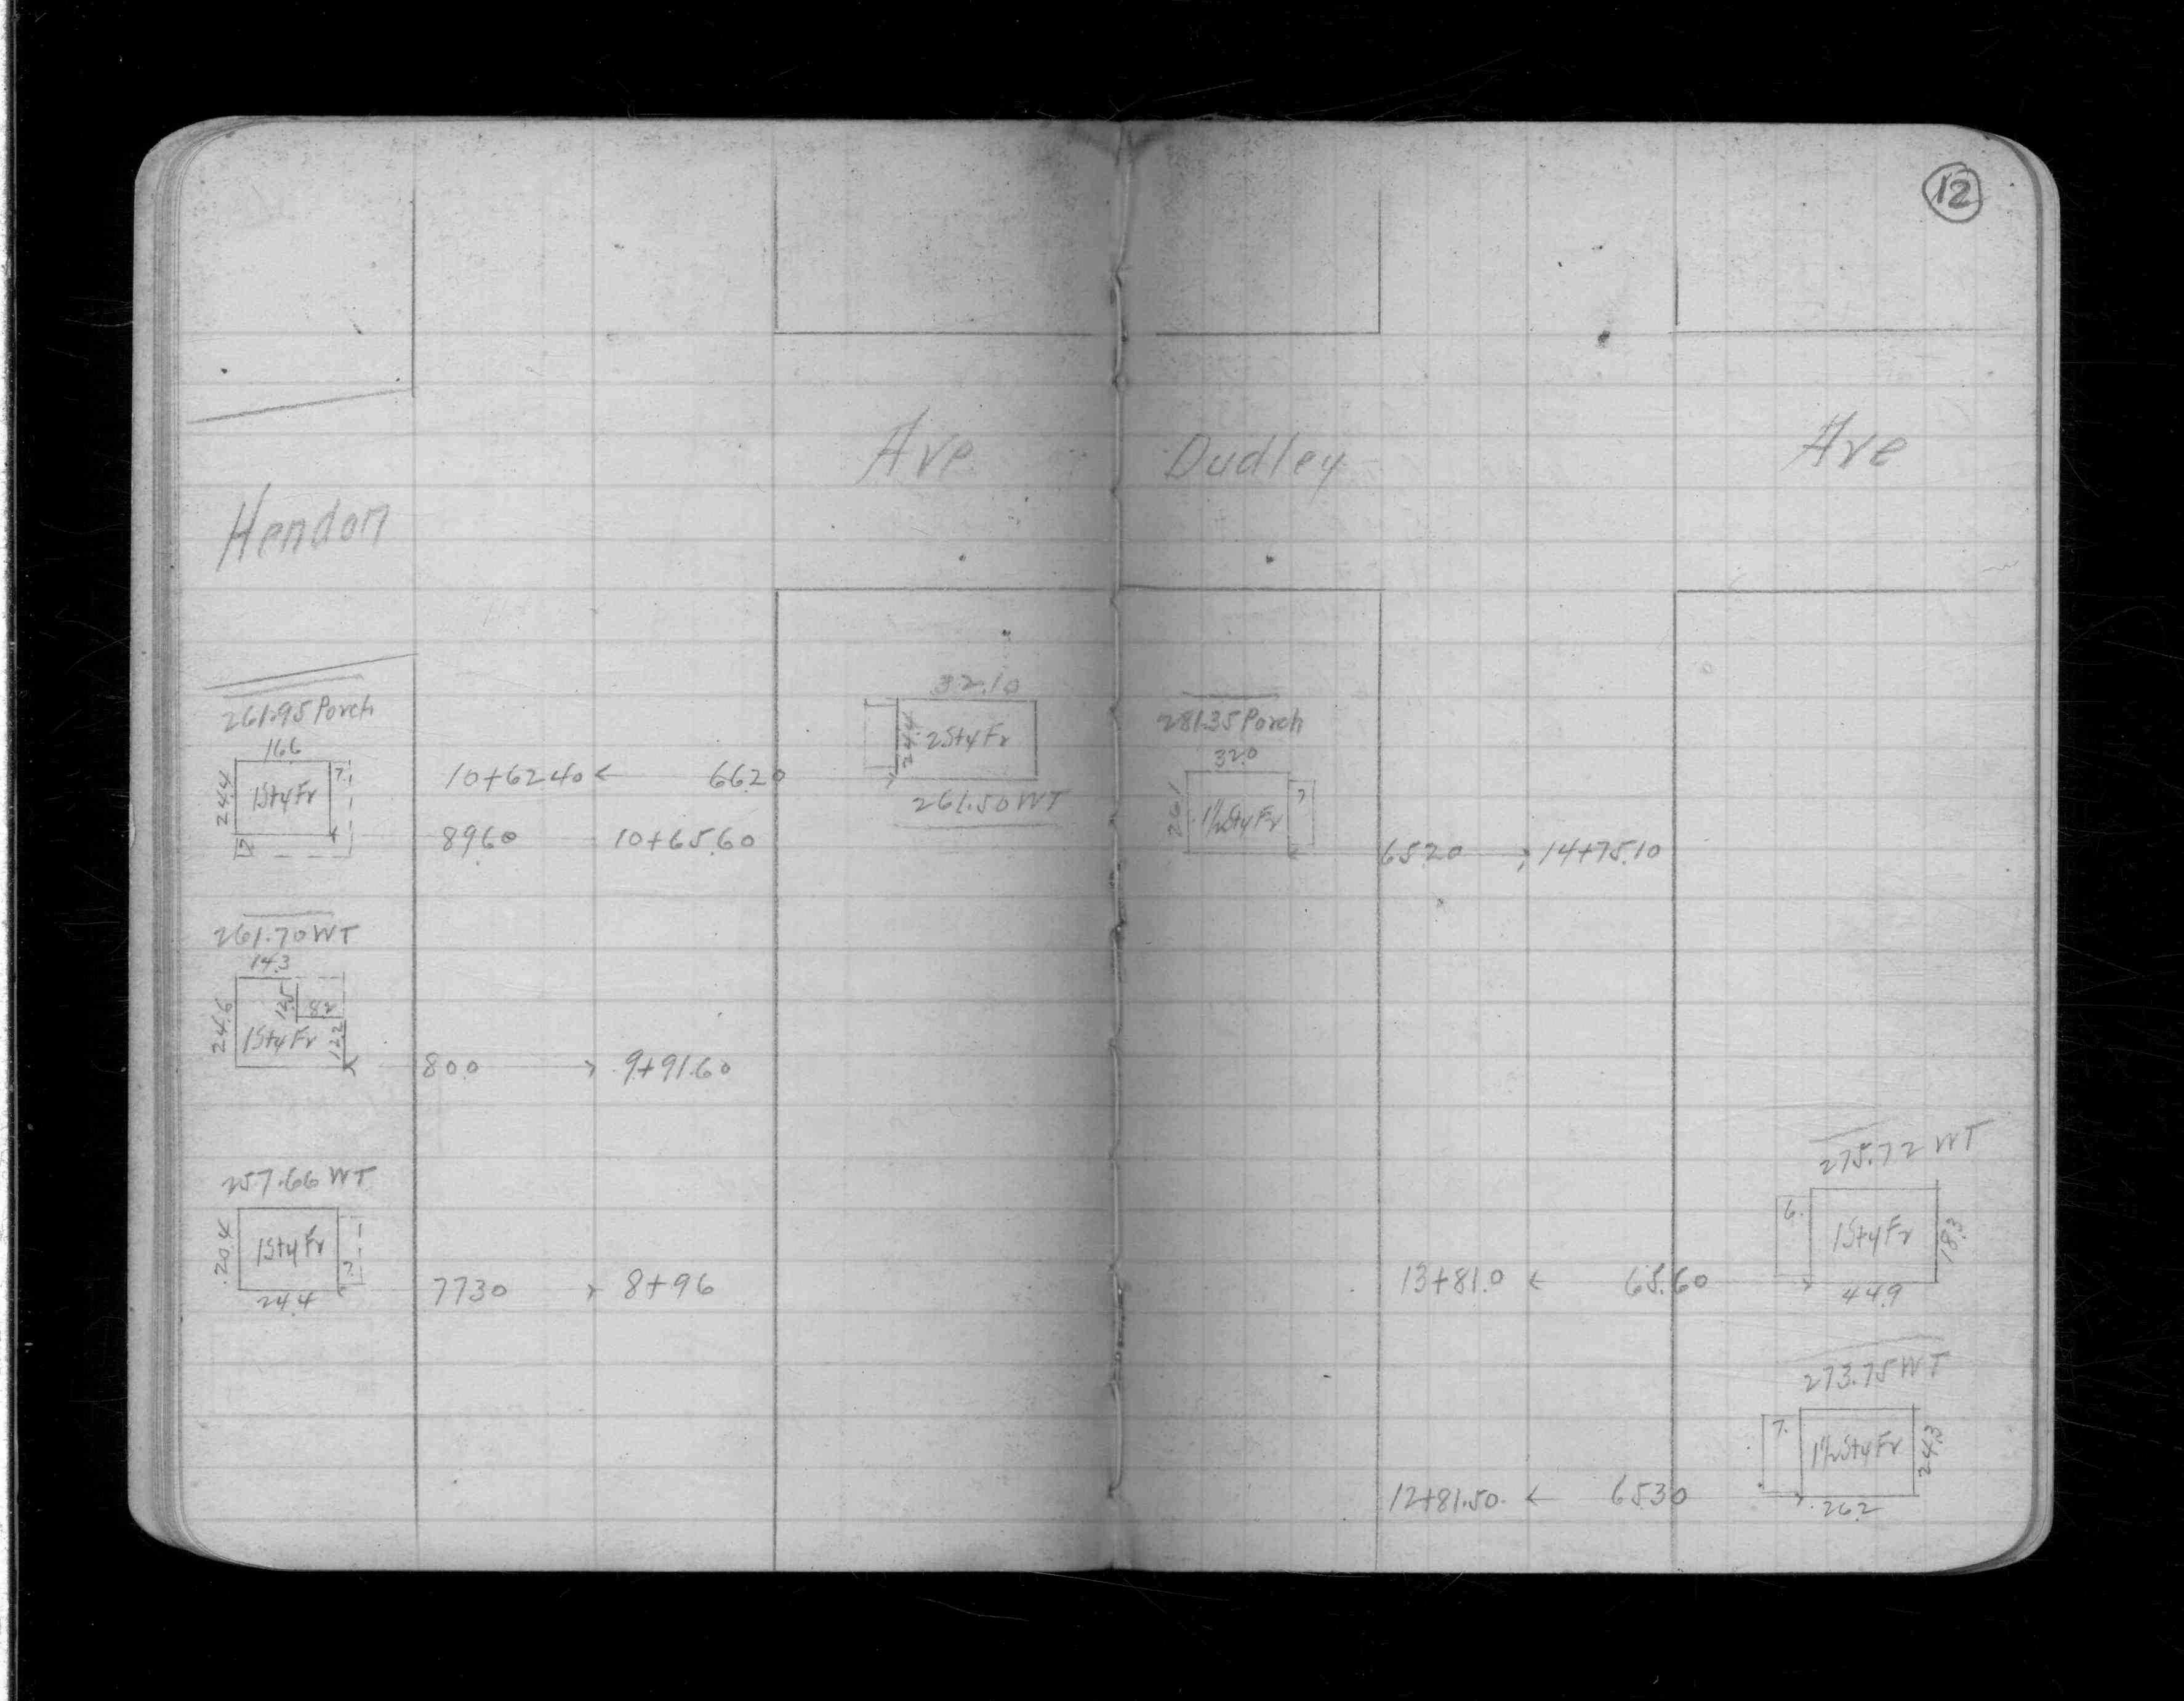 12
Ave
Hendon
261.95 Porch
16.6
24.4
1StyFr
7.
12
10+62.40
66.20
32.10
24.4
2StyFr
261.50 WT
89.60
10+65.60
261.70 WT
14.3
24.6
12.5
8.2
1StyFr
12.2
80.0
9+91.60
257.66 WT
20.4
1StyFr
7.
24.4
77.30
8+96
Dudley Ave
281.35 Porch
32.0
26.1
1½StyFr
7
65.20
14+75.10
275.72 WT
6.
1StyFr
18.3
13+81.0
65.60
44.9
273.75 WT
7.
1½StyFr
24.3
12+81.50
65.30
26.2